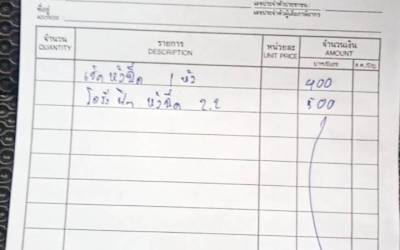 เลขประจำตัวประชาชน
ที่อยู่
ADDRESS
เลขประจำตัวผู้เสียภาษีอากร
จำนวน รายการ หน่วยละ จำนวนเงิน
QUANTITY DESCRIPTION UNIT PRICE AMOUNT
บาท/BAHT ส.ต./Stg.
เช็ค หัวฉีด 1 หัว 400
หัวฉีด 2.2 500